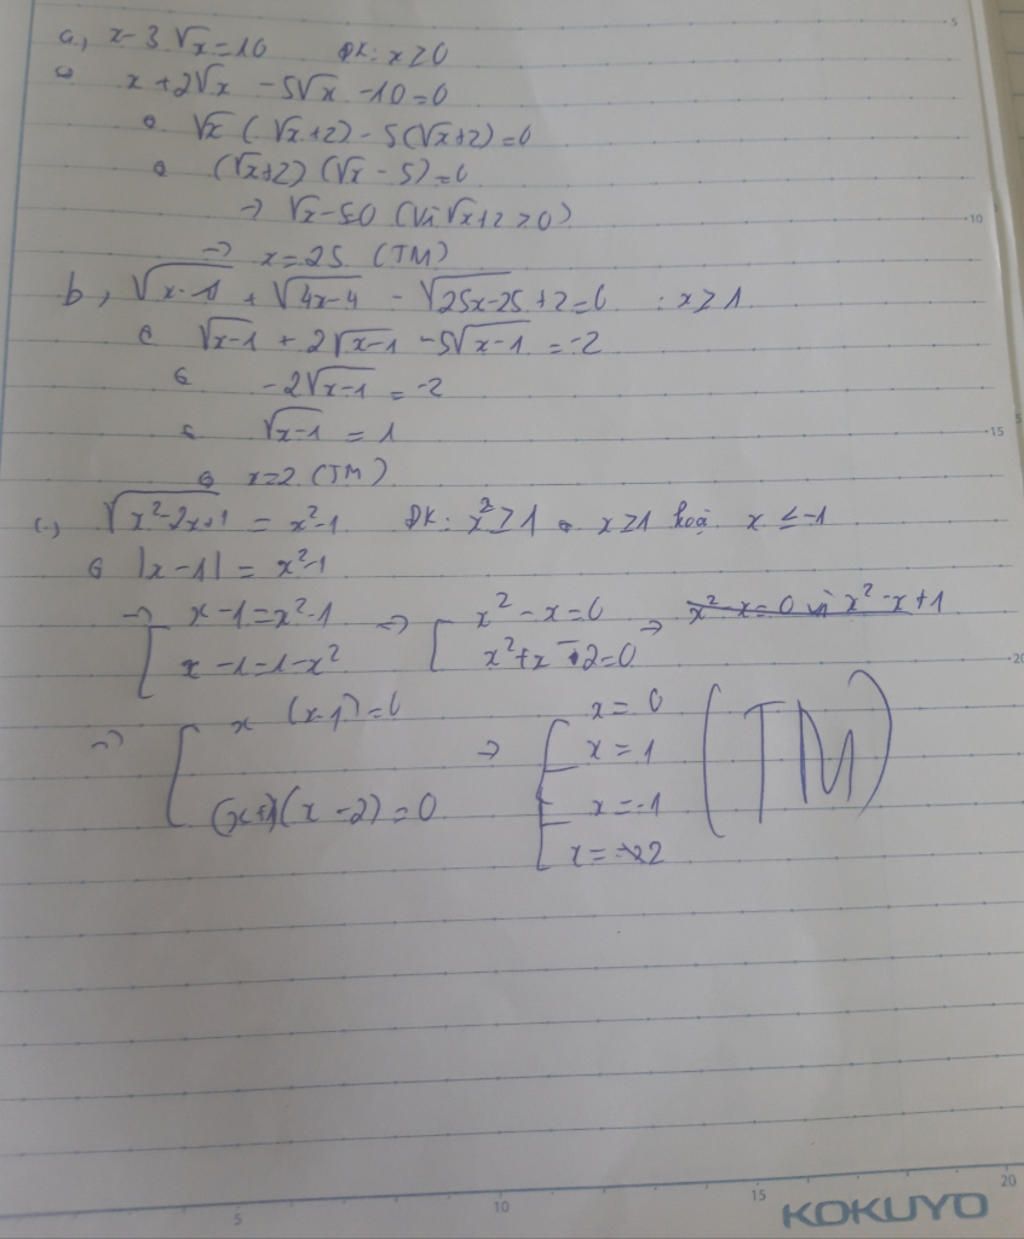 a, x - 3√x = 10 ĐK: x ≥ 0
⇔ x + 2√x - 5√x - 10 = 0
⇔ √x (√x + 2) - 5(√x + 2) = 0
⇔ (√x + 2) (√x - 5) = 0
⇒ √x - 5 = 0 (Vì √x + 2 > 0)
⇒ x = 25 (TM)
b, √(x - 1) + √(4x - 4) - √(25x - 25) + 2 = 0 : x ≥ 1
⇔ √(x - 1) + 2√(x - 1) - 5√(x - 1) = -2
⇔ -2√(x - 1) = -2
⇔ √(x - 1) = 1
⇔ x = 2 (TM)
c, √(x² - 2x + 1) = x² - 1 ĐK: x² ≥ 1 ⇔ x ≥ 1 hoặc x ≤ -1
⇔ |x - 1| = x² - 1
⇒ [ x - 1 = x² - 1 ⇒ [ x² - x = 0 ⇒ x² - x = 0 vì x² - x + 1
x - 1 = 1 - x² x² + x - 2 = 0
⇒ [ x (x - 1) = 0 ⇒ [ x = 0 (TM)
x = 1
(x + 1)(x - 2) = 0 x = -1
x = 2
5
10
15
20
5
10
15
20
KOKUYO